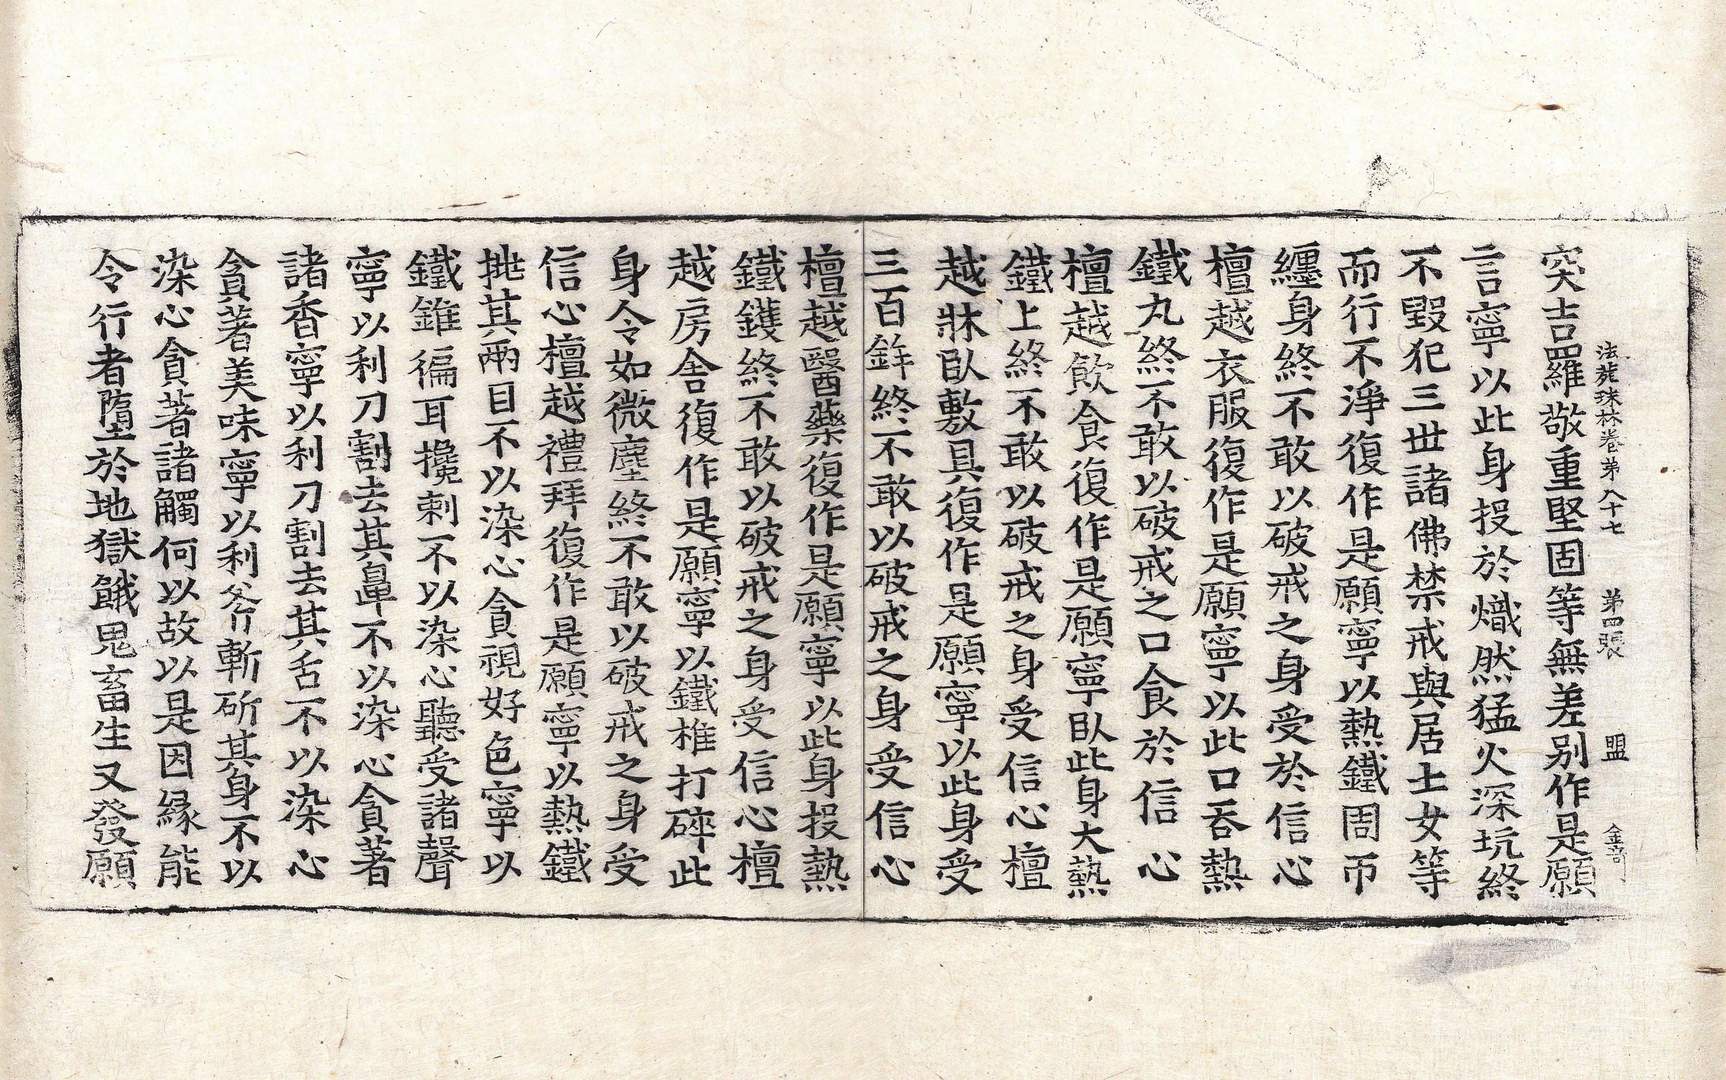 法苑珠林卷第八十七 第四張 盟 金奇
突吉羅敬重堅固等無差別作是願
言寧以此身投於熾然猛火深坑終
不毀犯三世諸佛禁戒與居士女等
而行不淨復作是願寧以熱鐵周帀
纏身終不敢以破戒之身受於信心
檀越衣服復作是願寧以此口吞熱
鐵丸終不敢以破戒之口食於信心
檀越飲食復作是願寧臥此身大熱
鐵上終不敢以破戒之身受信心檀
越牀臥敷具復作是願寧以此身受
三百鉾終不敢以破戒之身受信心
檀越醫藥復作是願寧以此身投熱
鐵鑊終不敢以破戒之身受信心檀
越房舍復作是願寧以鐵椎打碎此
身令如微塵終不敢以破戒之身受
信心檀越禮拜復作是願寧以熱鐵
挑其兩目不以染心貪視好色寧以
鐵錐徧耳攙刺不以染心聽受諸聲
寧以利刀割去其鼻不以染心貪著
諸香寧以利刀割去其舌不以染心
貪著美味寧以利斧斬斫其身不以
染心貪著諸觸何以故以是因緣能
令行者墮於地獄餓鬼畜生又發願